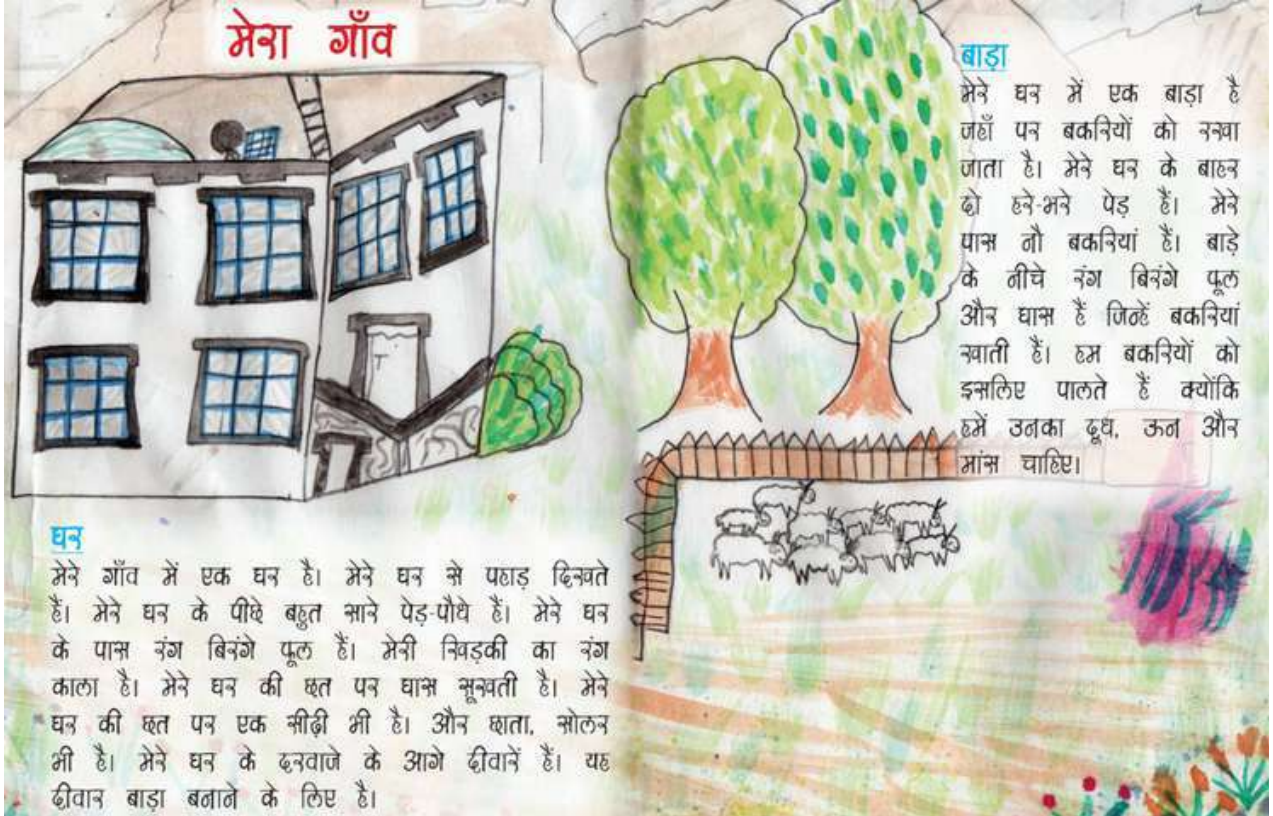 मेरा गाँव
घर
मेरे गाँव में एक घर है। मेरे घर से पहाड़ दिखते
हैं। मेरे घर के पीछे बहुत सारे पेड़-पौधे हैं। मेरे घर
के पास रंग बिरंगे फूल हैं। मेरी खिड़की का रंग
काला है। मेरे घर की छत पर घास सूखती है। मेरे
घर की छत पर एक सीढ़ी भी है। और छाता, सोलर
भी है। मेरे घर के दरवाजे के आगे दीवारें हैं। यह
दीवार बाड़ा बनाने के लिए है।
बाड़ा
मेरे घर में एक बाड़ा है
जहाँ पर बकरियों को रखा
जाता है। मेरे घर के बाहर
दो हरे-भरे पेड़ हैं। मेरे
पास नौ बकरियां हैं। बाड़े
के नीचे रंग बिरंगे फूल
और घास हैं जिन्हें बकरियां
खाती हैं। हम बकरियों को
इसलिए पालते हैं क्योंकि
हमें उनका दूध, ऊन और
मांस चाहिए।